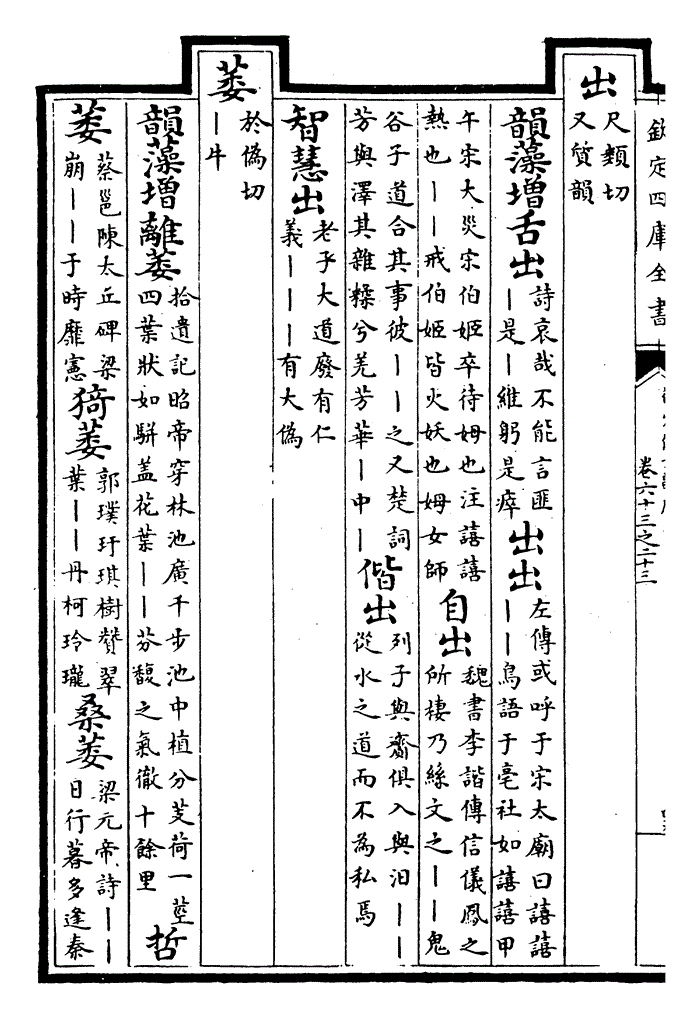 欽定四庫全書
卷六十三之二十三
出
尺類切
又質韻
韻藻增舌出
詩哀哉不能言匪
丨是丨維躬是瘁
出出
左傳或呼于宋太廟曰譆譆
丨丨鳥語于亳社如譆譆甲
午宋大災宋伯姬卒待姆也注譆譆
熱也丨丨戒伯姬皆火妖也姆女師
自出
魏書李諧傳信儀鳳之
所棲乃絲文之丨丨鬼
谷子道合其事彼丨丨之又楚詞
芳與澤其雜糅兮羌芳華丨中丨
偕出
列子與齎俱入與汨丨丨
從水之道而不為私焉
智慧出
老子大道廢有仁
義丨丨丨有大偽
萎
於偽切
丨牛
韻藻增離萎
拾遺記昭帝穿林池廣千步池中植分芰荷一莖
四葉狀如駢盖花葉丨丨芬馥之氣徹十餘里
哲
萎
蔡邕陳太丘碑梁
崩丨丨于時靡憲
猗萎
郭璞玗琪樹贊翠
葉丨丨丹柯玲瓏
桑萎
梁元帝詩丨丨
日行暮多逢秦